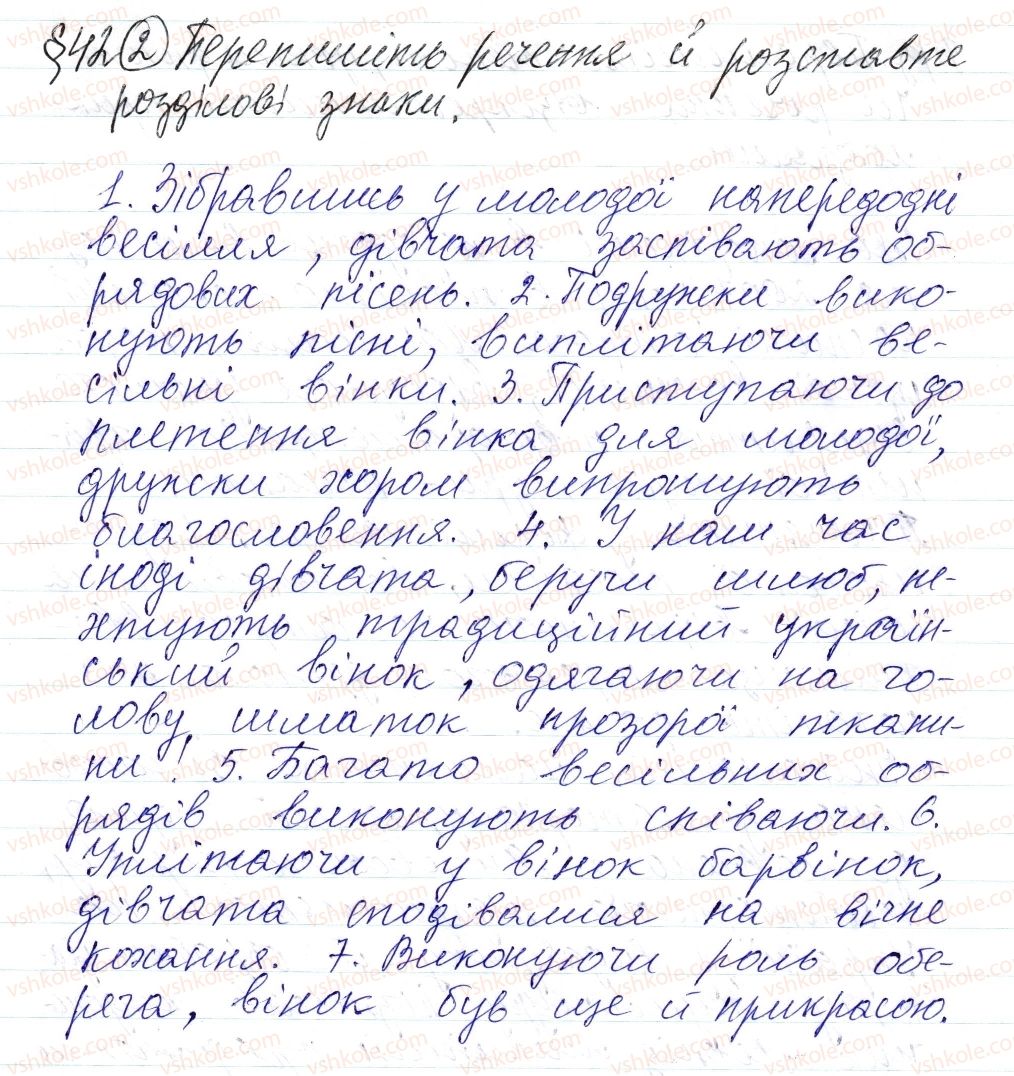 §42 ② Перепишіть речення й розставте
розділові знаки.
1. Зібравшись у молодої напередодні
весілля, дівчата заспівають об-
рядових пісень. 2. Подружки вико-
нують пісні, виплітаючи ве-
сільні вінки. 3. Приступаючи до
плетення вінка для молодої,
дружки хором випрошують
благословення. 4. У наш час
іноді дівчата, беручи шлюб, не-
хтують традиційний україн-
ський вінок, одягаючи на го-
лову шматок прозорої ткани-
ни! 5. Багато весільних об-
рядів виконують співаючи. 6.
Уплітаючи у вінок барвінок,
дівчата сподівалися на вічне
кохання. 7. Виконуючи роль обе-
рега, вінок був ще й прикрасою.